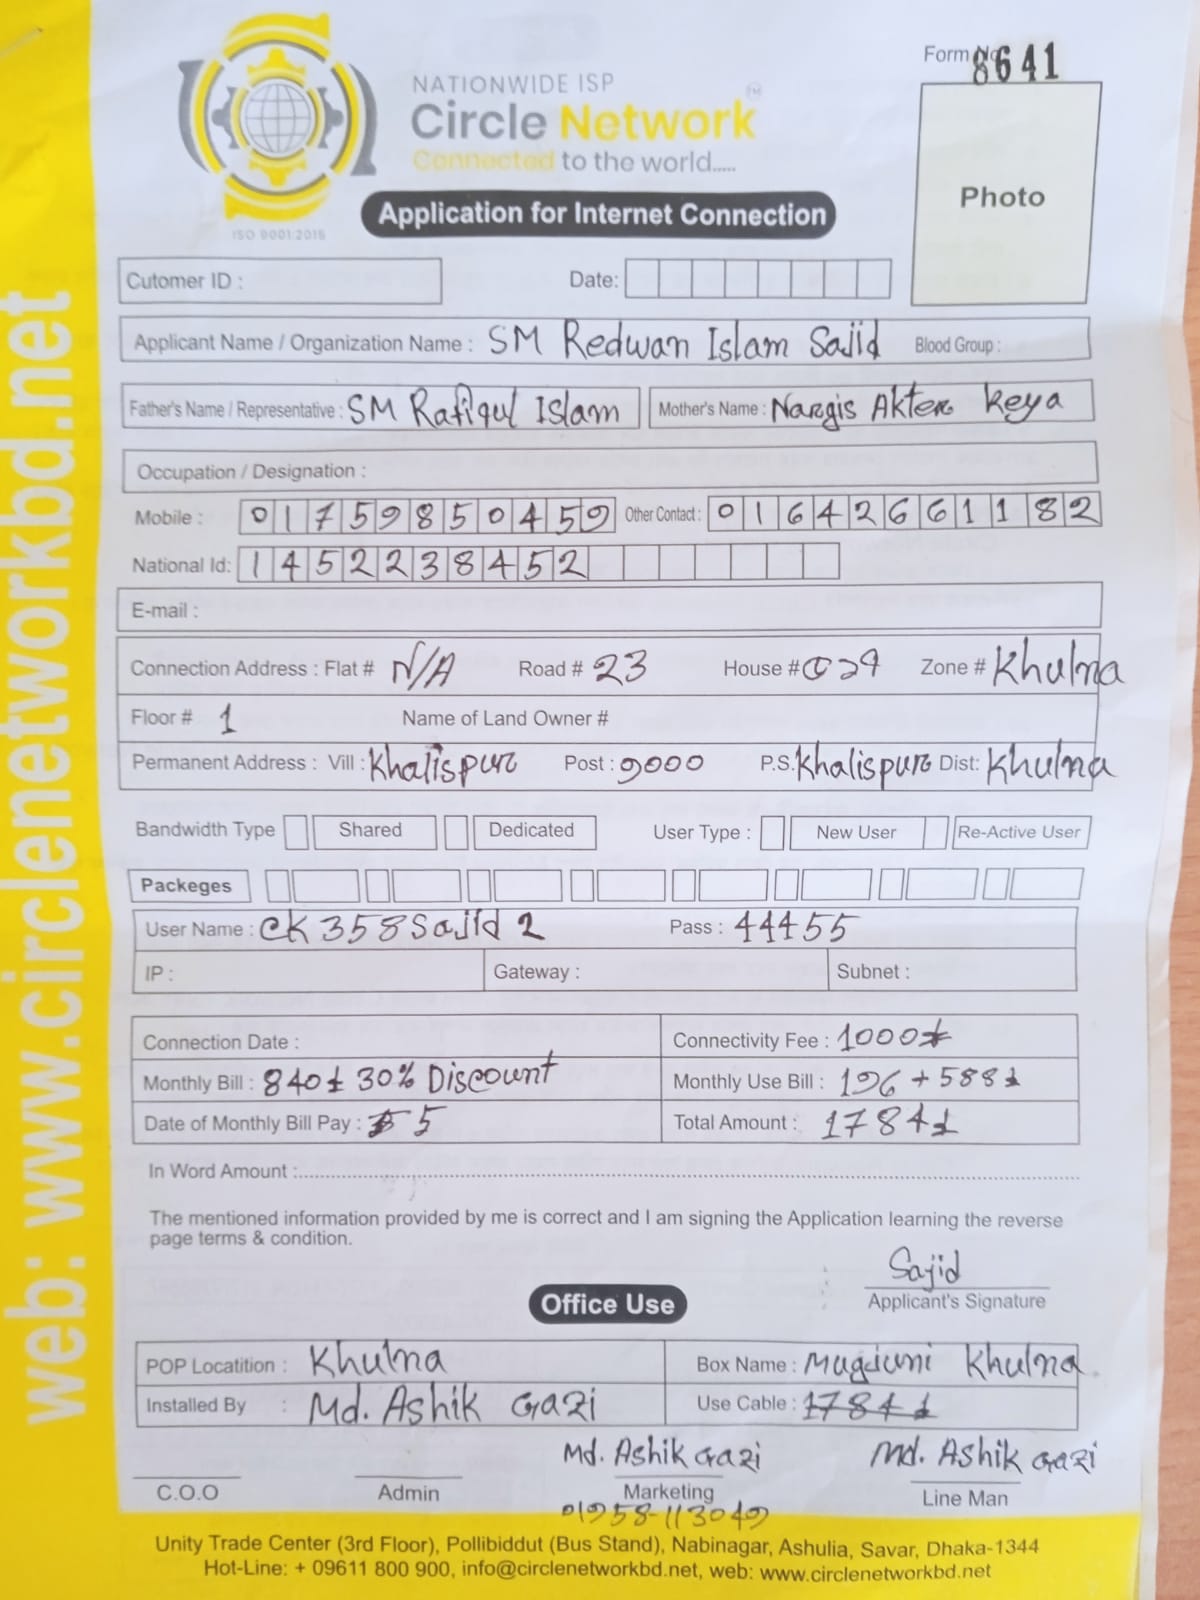 web: www.circlenetworkbd.net
NATIONWIDE ISP
Circle Network TM
Connected to the world.....
ISO 9001:2015
Form No 8641
Photo
Application for Internet Connection
Cutomer ID : Date:
Applicant Name / Organization Name : SM Redwan Islam Sajid Blood Group :
Father's Name / Representative : SM Rafiqul Islam Mother's Name : Nargis Akter Keya
Occupation / Designation :
Mobile : 01759850459 Other Contact : 01642661182
National Id: 1452238452
E-mail :
Connection Address : Flat # N/A Road # 23 House # Zone # Khulna
Floor # 1 Name of Land Owner #
Permanent Address : Vill : Khalispur Post : 9000 P.S. Khalispur Dist: Khulna
Bandwidth Type Shared Dedicated User Type : New User Re-Active User
Packeges
User Name : CK358Sajid2 Pass : 44455
IP : Gateway : Subnet :
Connection Date : Connectivity Fee : 1000৳
Monthly Bill : 840৳ 30% Discount Monthly Use Bill : 196 + 588৳
Date of Monthly Bill Pay : 5 Total Amount : 1784৳
In Word Amount :
The mentioned information provided by me is correct and I am signing the Application learning the reverse
page terms & condition.
Sajid
Applicant's Signature
Office Use
POP Locatition : Khulna Box Name : Khulna
Installed By : Md. Ashik Gazi Use Cable : 1784৳
Md. Ashik Gazi Md. Ashik Gazi
C.O.O Admin Marketing Line Man
01958-113049
Unity Trade Center (3rd Floor), Pollibiddut (Bus Stand), Nabinagar, Ashulia, Savar, Dhaka-1344
Hot-Line: + 09611 800 900, info@circlenetworkbd.net, web: www.circlenetworkbd.net